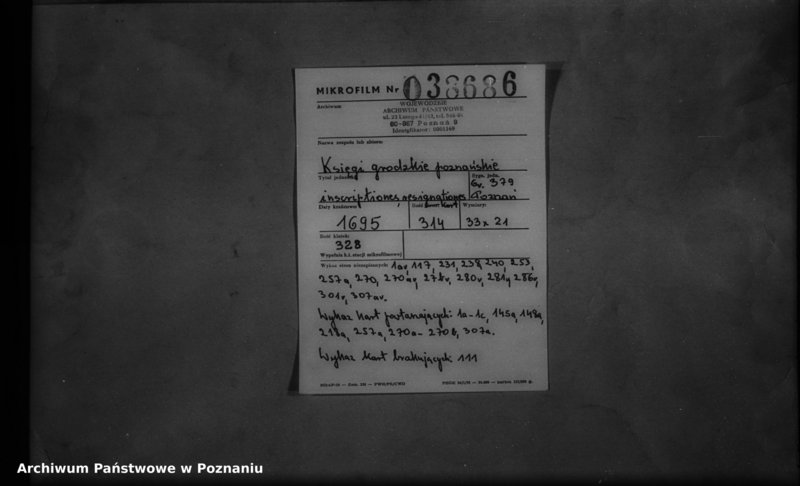 MIKROFILM Nr 038686
Archiwum
WOJEWÓDZKIE
ARCHIWUM PAŃSTWOWE
60-967 Poznań 9
Identyfikator:
Nazwa zespołu lub zbioru:
Księgi grodzkie poznańskie
Tytuł jednostki Sygn. jedn.
Gr. 379
inscriptiones, resignationes Poznań
Daty krańcowe Ilość kart Wymiary:
1695 314 33x21
Ilość klatek:
328
Wypełnia k.t. stacji mikrofilmowej
Wykaz stron niezapisanych: 1av, 117, 231, 238, 240, 253,
257a, 270, 270av, 278v, 280v, 281v, 286v,
301v, 307av.
Wykaz kart powtarzających: 1a-1c, 145a, 148a,
218a, 257a, 270a-270b, 307a.
Wykaz kart brakujących: 111
Archiwum Państwowe w Poznaniu